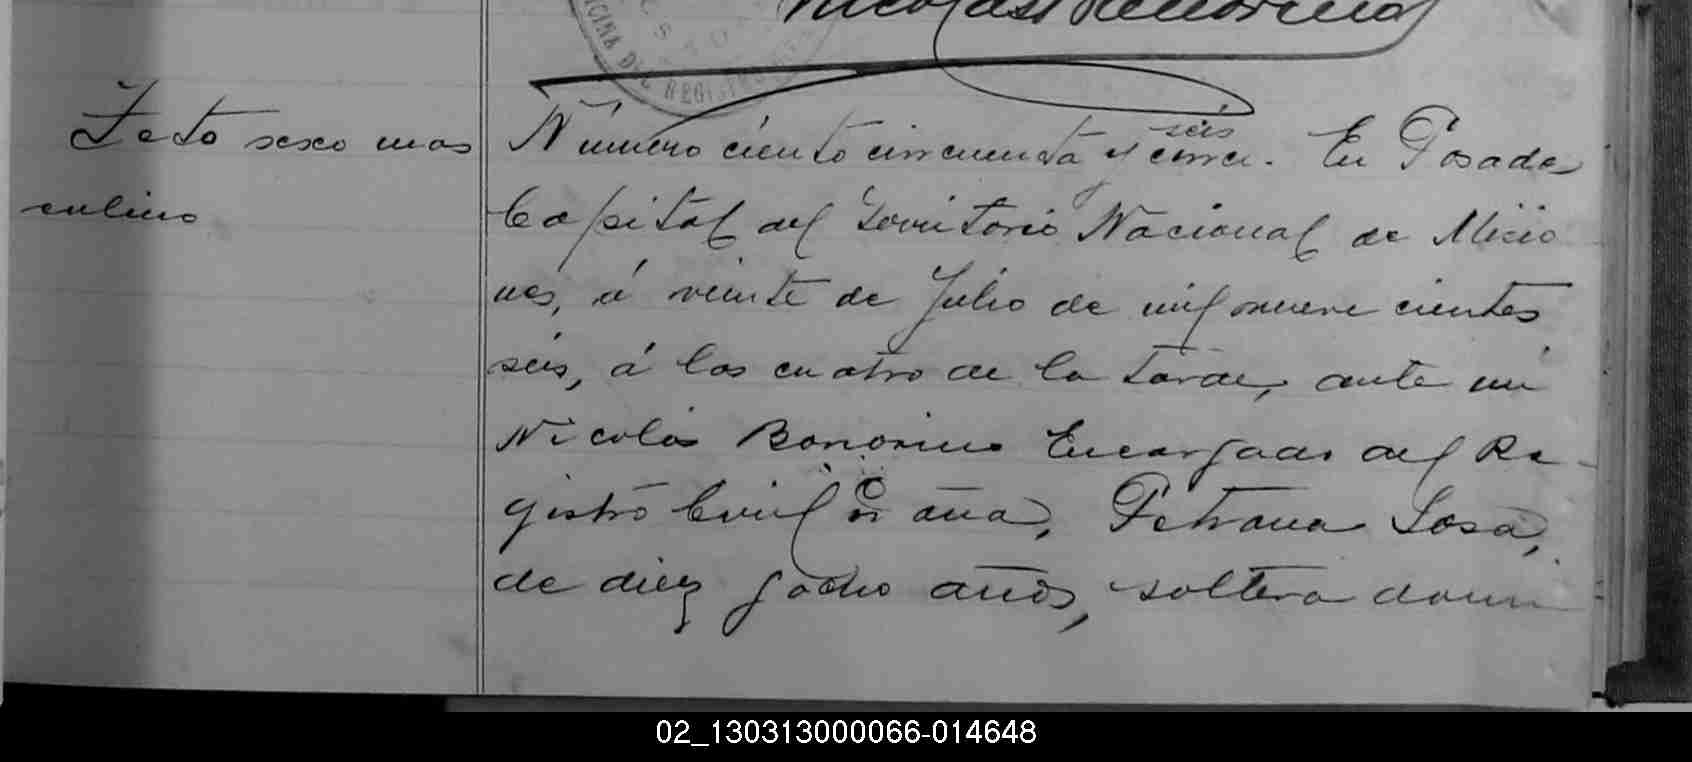 Nicolás Bonorino
OFICINA DEL REGISTRO
Feto sexo mas
culino
Número ciento cincuenta y cinco seis. En Posadas
Capital del Territorio Nacional de Misio
nes, á veinte de Julio de mil nueve cientos
seis, á las cuatro de la tarde, ante mi
Nicolás Bonorino Encargado del Re-
gistro Civil Doña, Petrona Sosa,
de diez y ocho años, soltera domi
02_130313000066-014648